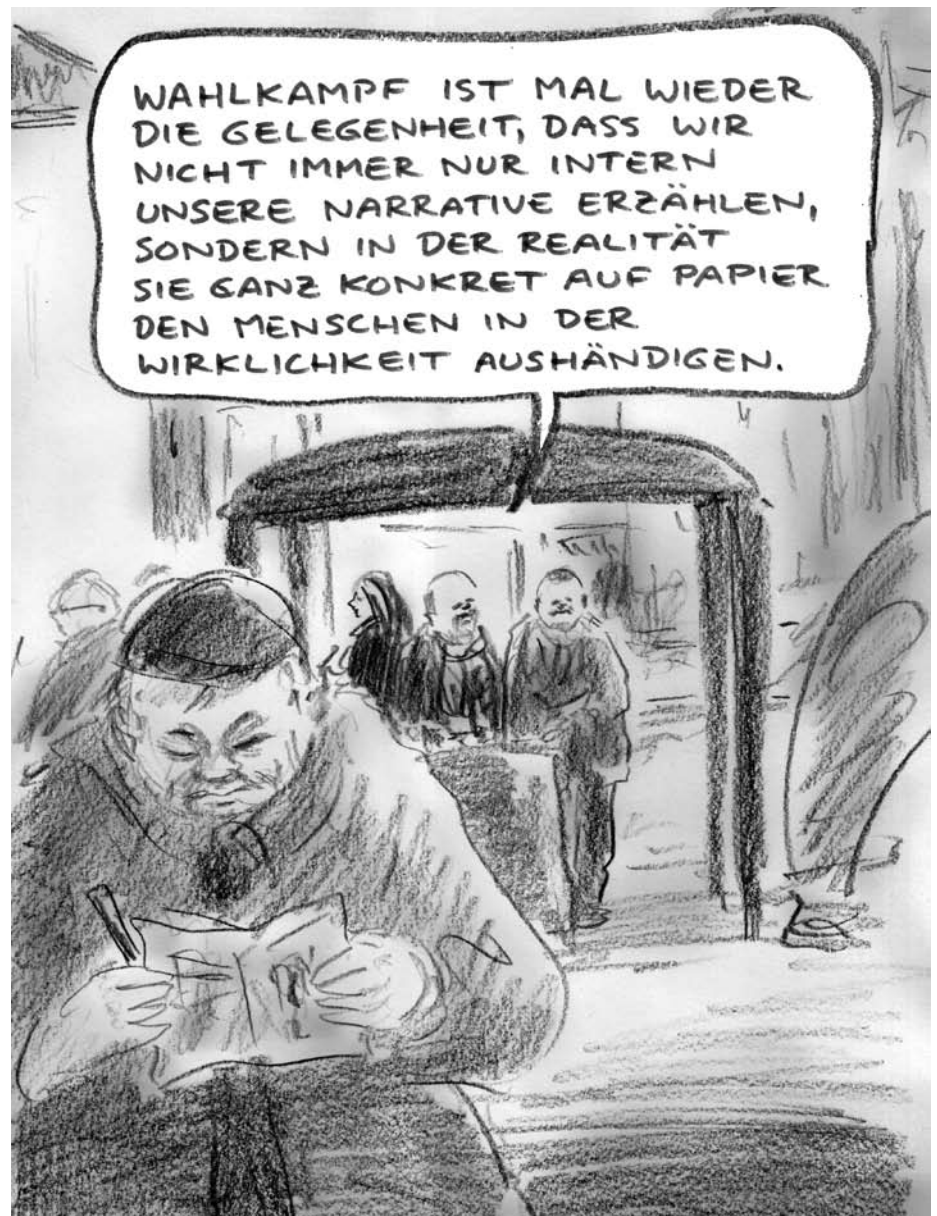 WAHLKAMPF IST MAL WIEDER
DIE GELEGENHEIT, DASS WIR
NICHT IMMER NUR INTERN
UNSERE NARRATIVE ERZÄHLEN,
SONDERN IN DER REALITÄT
SIE GANZ KONKRET AUF PAPIER
DEN MENSCHEN IN DER
WIRKLICHKEIT AUSHÄNDIGEN.